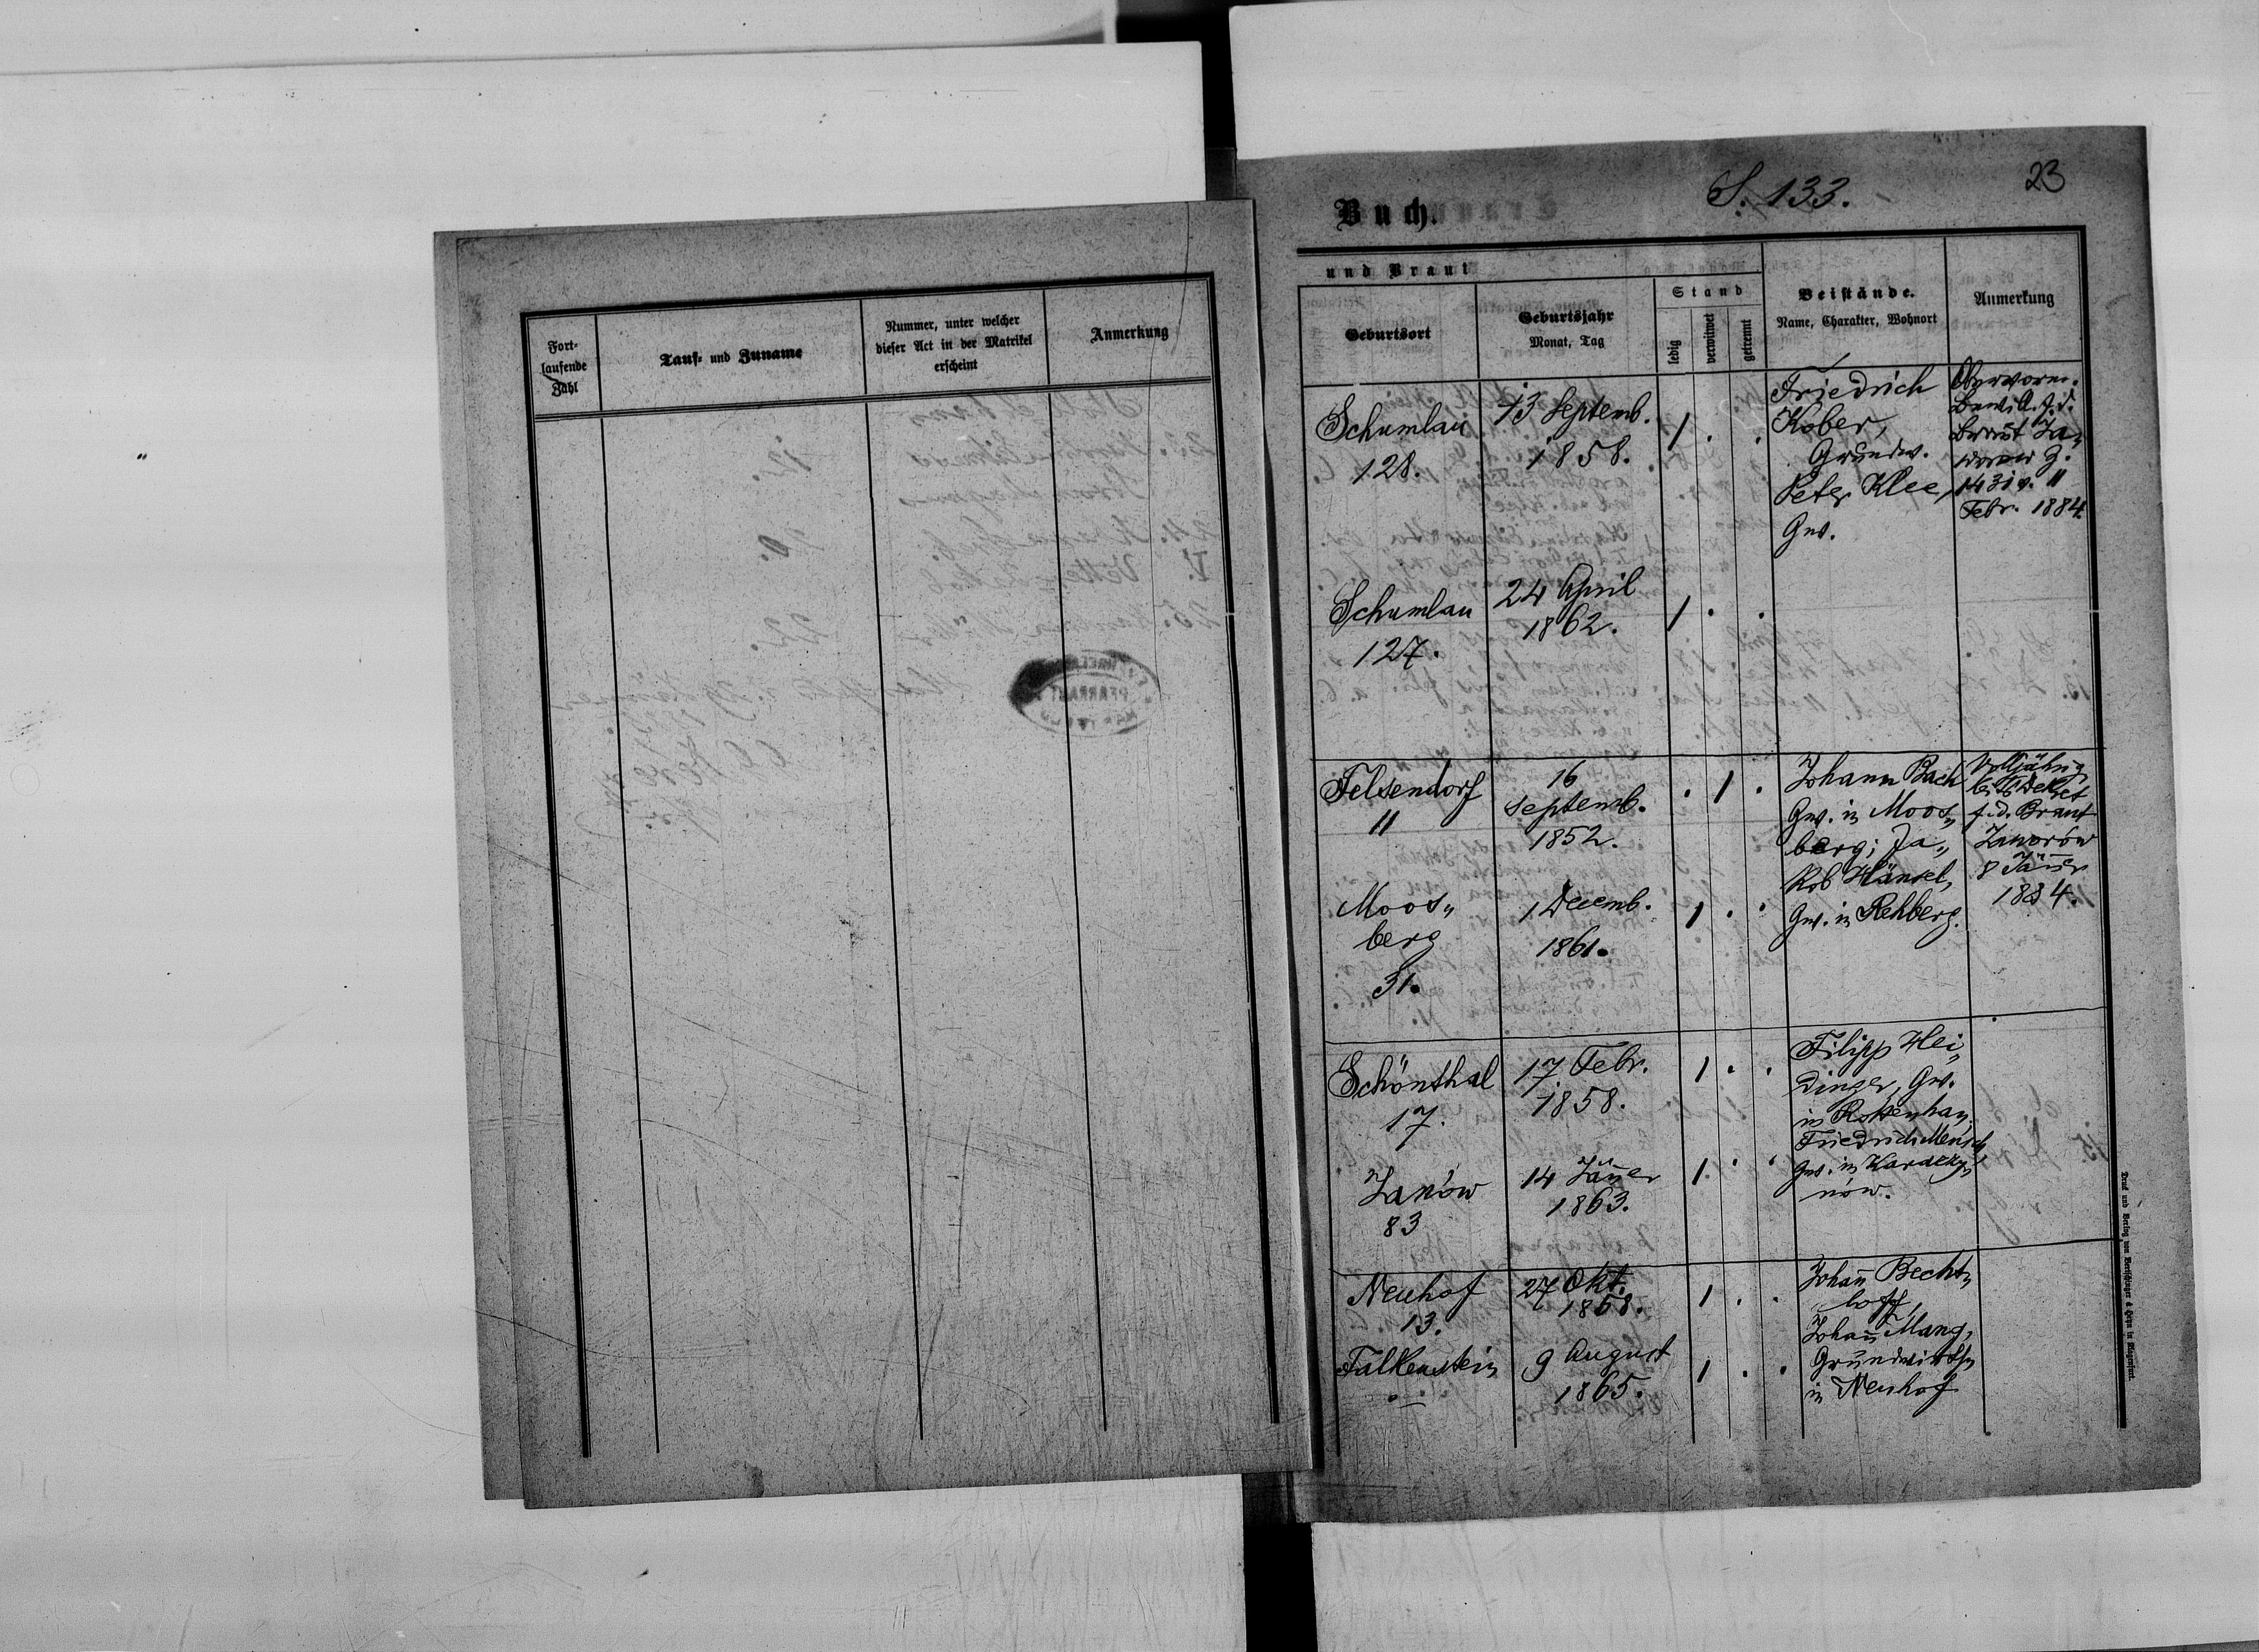 Fort-
laufende
Zahl
Tauf- und Zuname
Nummer, unter welcher
dieser Act in der Matrikel
erscheint
Anmerkung
Buch.
S. 133.
23
und Braut
Geburtsort
Geburtsjahr
Monat, Tag
Stand
ledig
verwitwet
getrennt
Beistände.
Name, Charakter, Wohnort
Anmerkung
Schumlau
128.
13 Septemb.
1858.
1 . .
Friedrich
Kober,
Grundw.
Peter Klee,
Gw.
Obervorm.
Bewill. f. d.
Braut Ja„
worow Z.
1431 v. 11
Febr. 1884.
Schumlau
127.
24 April
1862.
1 . .
Felsendorf
11
16
Septemb.
1852.
. 1 .
Johann Bach
Gw. in Moos„
berg; Ja„
kob Hänsel,
Gw. in Rehberg.
Volljährig„
keits Dekret
f. d. Braut
Jaworów
8 Jäner
1884.
Moos„
berg
31.
1 Decemb.
1861.
1 . .
Schönthal
17.
17 Febr.
1858.
1 . .
Filipp Hei„
dinger, Gw.
in Rottenhan,
Friedrich Mensch,
Gw. in Karaczy„
nów.
Janów
83
14 Jäner
1863.
1 . .
Neuhof
13.
27 Okt.
1858.
1 . .
Johann Becht„
loff,
Johann Mang,
Grundwirthe
in Neuhof
Falkenstein
9 August
1865.
1 . .
Druck und Verlag von